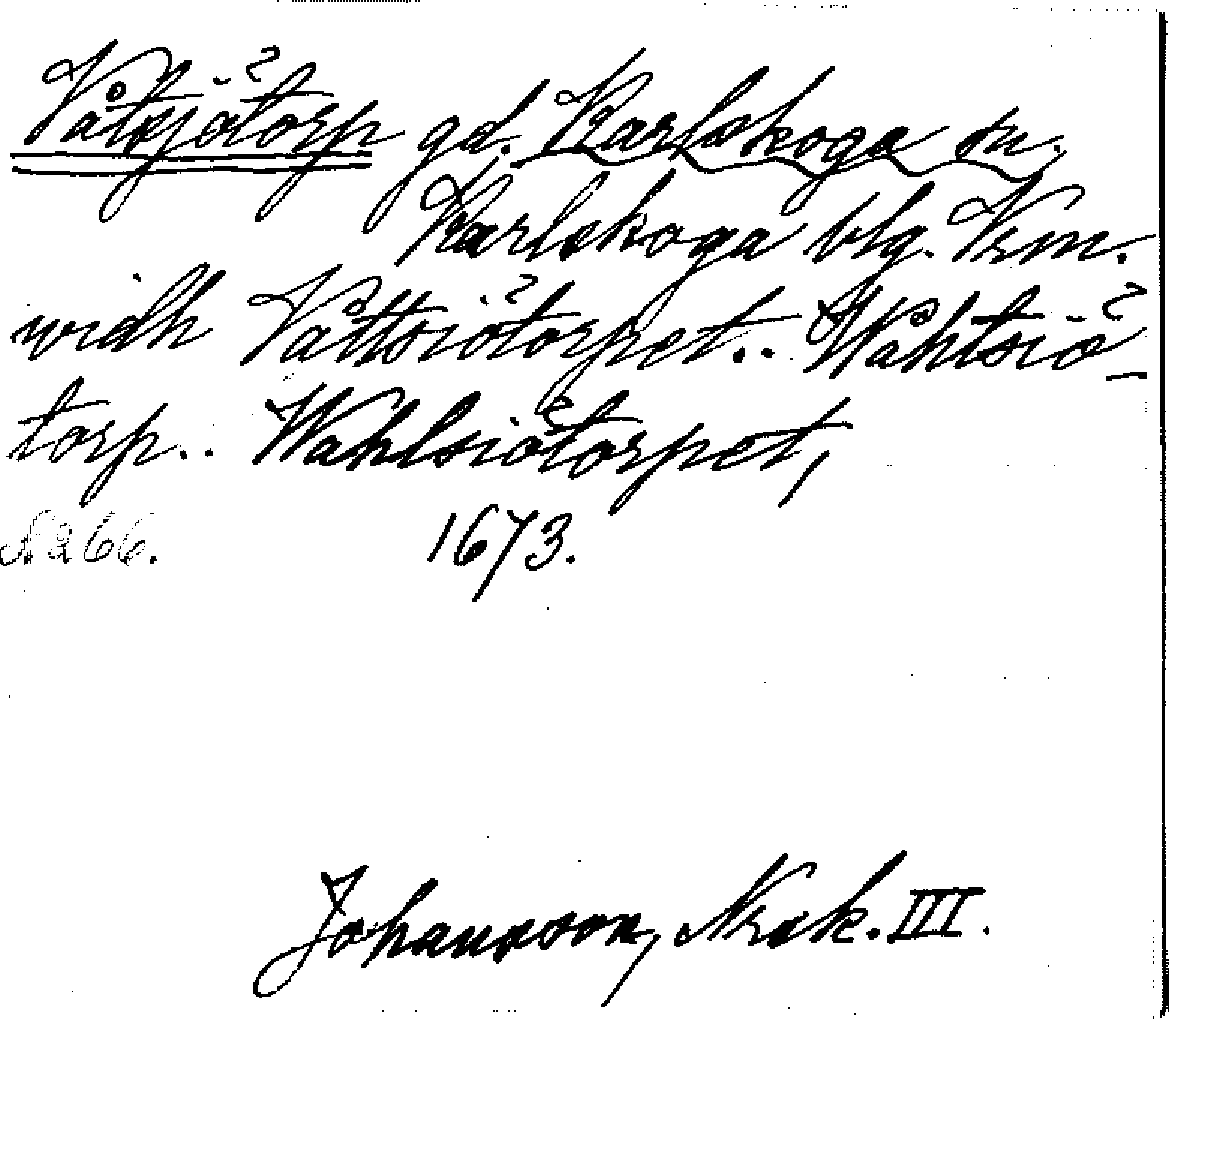 Våtsjötorp gd. Karlskoga sn.
Karlskoga blg. Vrm.
widh Våttsiötorpet.. Wåhtsiö-
torp.. Wahlsiötorpet,
1673.
Johansson, Nrsk. III.